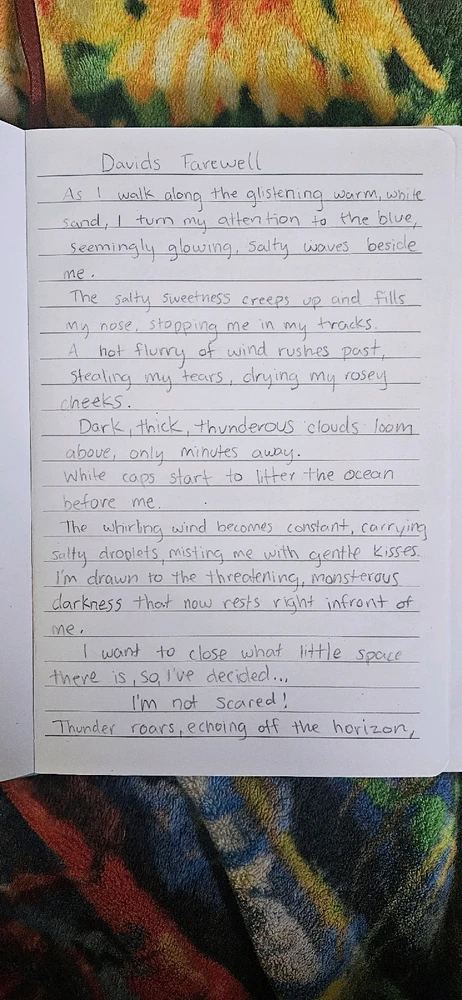 Davids Farewell
As I walk along the glistening warm, white
sand, I turn my attention to the blue,
seemingly glowing, salty waves beside
me.
The salty sweetness creeps up and fills
my nose, stopping me in my tracks.
A hot flurry of wind rushes past,
stealing my tears, drying my rosey
cheeks.
Dark, thick, thunderous clouds loom
above, only minutes away.
White caps start to litter the ocean
before me.
The whirling wind becomes constant, carrying
salty droplets, misting me with gentle kisses.
I'm drawn to the threatening, monsterous
darkness that now rests right infront of
me.
I want to close what little space
there is, so, I've decided...
I'm not scared!
Thunder roars, echoing off the horizon,